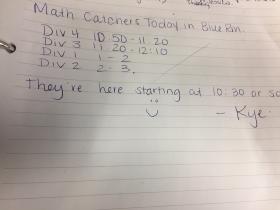 Math Catchers Today in Blue Rm.
Div 4 10 50 - 11. 20
Div 3 11. 20 - 12:10
Div 1 1 - 2
Div 2 2 - 3.
They're here starting at 10:30 or so
- Kye